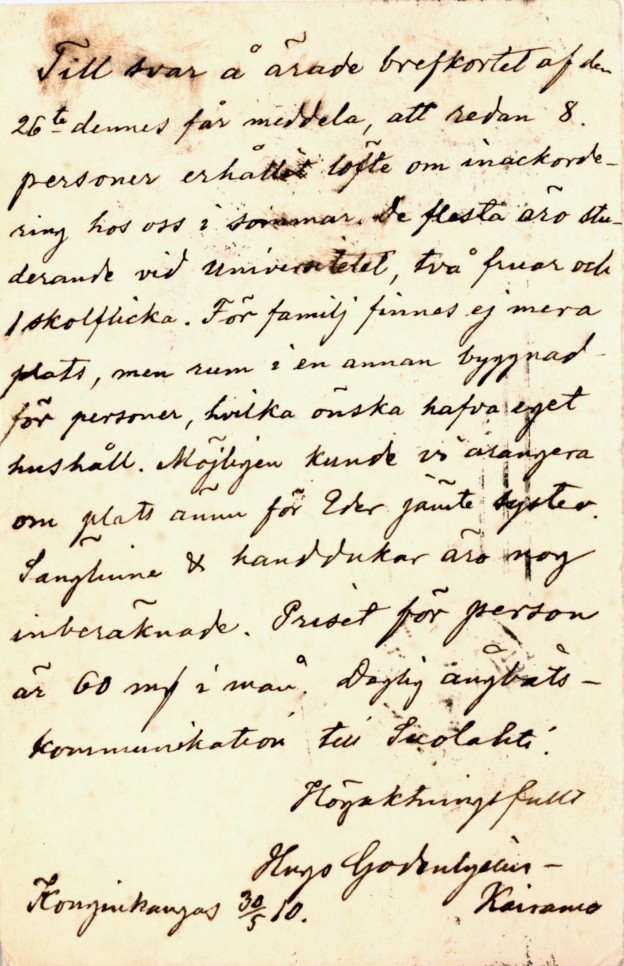 Till svar å ärade brefkortet af den
26te dennes får meddela, att redan 8.
personer erhållit löfte om inackorde-
ring hos oss i sommar. De flesta äro stu-
derande vid Universitetet, två fruar och
1 skolflicka. För familj finnes ej mera
plats, men rum i en annan byggnad
för personer, hvilka önska hafva eget
hushåll. Möjligen kunde vi arangera
om plats ännu för Eder jämte syster.
Sänglinne & handdukar äro nog
inberäknade. Priset för person
är 60 mk i mån. Daglig ångbåts-
kommunikation till Suolahti.
Högaktningsfullt
Hugo
Konginkangas 30/5 10. Kairamo